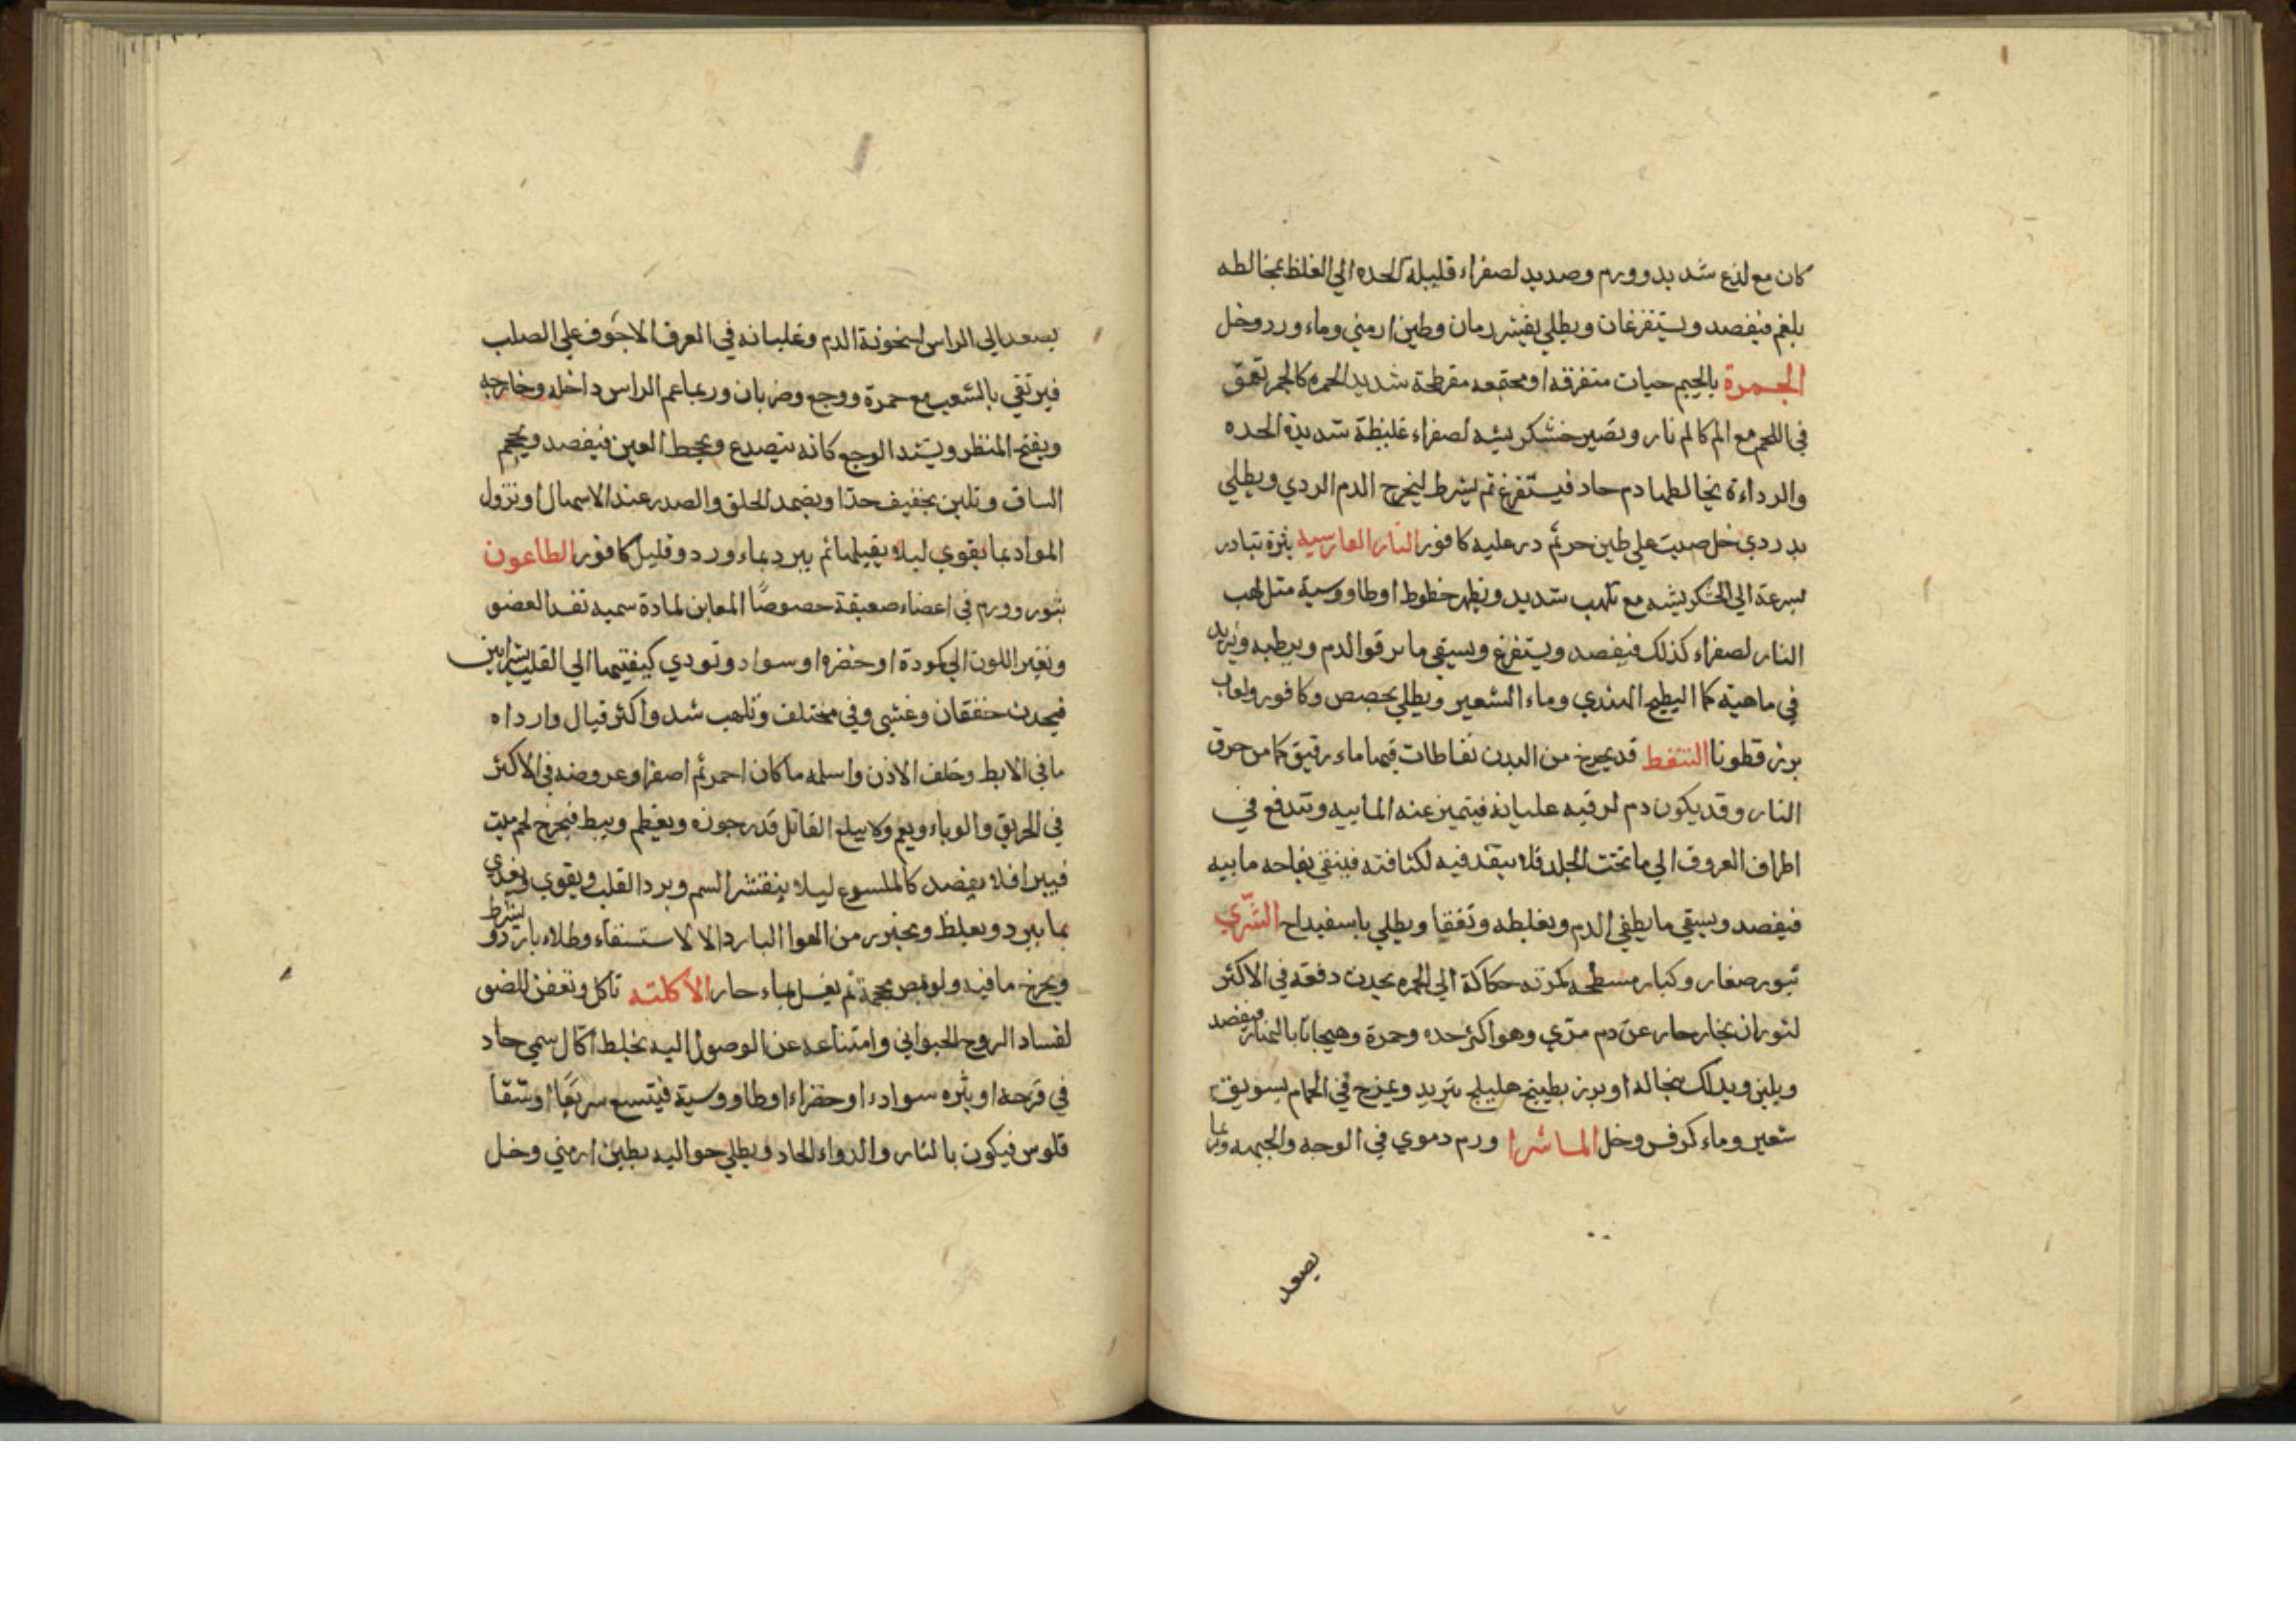 كان مع لذع شديد وورم وصديد لصفراء قليلة الحده الي الغلظ بمخالطه
بلغم فيفصد ويستفرغان ويطلي بقشر رمان وطين ارمني وماء ورد وخل
الجمرة بالجيم حبات متفرقه او مجتمعه مفرطحة شديد الحمره كالجمر تعمق
في اللحم مع الم كالم نار وتصير خشكريشه لصفراء غليظة شديدة الحده
والرداءة يخالطها دم حاد فيستفرغ ثم يشرط ليخرج الدم الردي ويطلي
بدردي خل صبت علي طين حر ثم در عليه كافور النار الفارسيه بثرة تبادر
بسرعة الي الخشكريشه مع تلهب شديد ويظهر خطوط او طاووسية مثل لهب
النار لصفراء كذلك فيفصد ويستفرغ ويسقي ما يرقو الدم ويرطبه ويزيد
في ماهيته كما البطيخ الهندي وماء الشعير ويطلي بحصص وكافور ولعاب
بزر قطونا التنفط قد يخرج من البدن نفاطات فيها ماء رقيق كما من حرق
النار وقد يكون دم لرقيه غليانه فيتميز عنه المابيه وتندفع في
اطراف العروق الي ما تحت الجلد فلا ينفذ فيه لكثافته فينقي نفاحه مابيه
فيفصد ويسقي ما يطفي الدم ويغلظه وتفقا ويطلي باسفيداج الشري
ثبور صغار وكبار مسطحه بكربه حكاكة الي الحمره يحدث دفعه في الاكثر
لثوران بخار حار عن دم مرّي وهو اكثر حده وحمرة وهيجانا بالنهار فيفصد
ويلين ويدلك بنخاله او بزر بطيخ هليلج تبريد ويمزج في الحمام بسويق
شعير وماء كرفس وخل الماشرا ورم دموي في الوجه والجبهه وربما
يصعد
يصعد الي الراس لسخونة الدم وغليانه في العرق الاجوف علي الصلب
فيرتقي بالشعب مع حمرة ووجع وضربان وربما عم الراس داخله وخارجه
ويفتح المنظر ويشتد الوجع كانه يتصدع ويجحظ العين فيفصد ويحجم
الساق وتلين بخفيف حدا ويضمد الحلق والصدر عند الاسهال او نزول
المواد بما يقوي ليلا يقبلها ثم يبرد بماء ورد وقليل كافور الطاعون
بثور وورم في اعضاء ضعيفة خصوصًا المغابن لمادة سميه تفسد العضو
وتغير اللون الي كمودة او خضره او سواد وتودي كيفيتها الي القلب بشرايين
فيحدث خفقان وغشي وقي مختلف وتلهب شد واكثر قيال وارداه
ما في الابط وخلف الاذن واسلمه ما كان احمر ثم اصفر وعروضه في الاكثر
في الحريق والوباء ويعم ولا يبلع القاتل قدر جوزه ويعظم ويبط فيخرج لحم ميت
فيبرا فلا يفصد كالملسوع ليلا ينتشر السم وبرد القلب ويقوي ويغذي
بما يبرد ويغلظ ويحترز من الهوا البارد الا لاستنشاء وطلاء بارد ويشرط
ويخرج ما فيه ولو بمص محجمة ثم يغسل بماء حار الاكلته تاكل وتعفن للعضو
لفساد الروح الحيواني وامتناعه عن الوصول اليه بخلط اكال سمي حاد
في قرحه او بثره سوادء او خضراء او طاووسية فيتسع سريعًا اوشقا
قلوس فيكون بالنار والدواء الحاد ويطلي حواليه بطين ارمني وخل